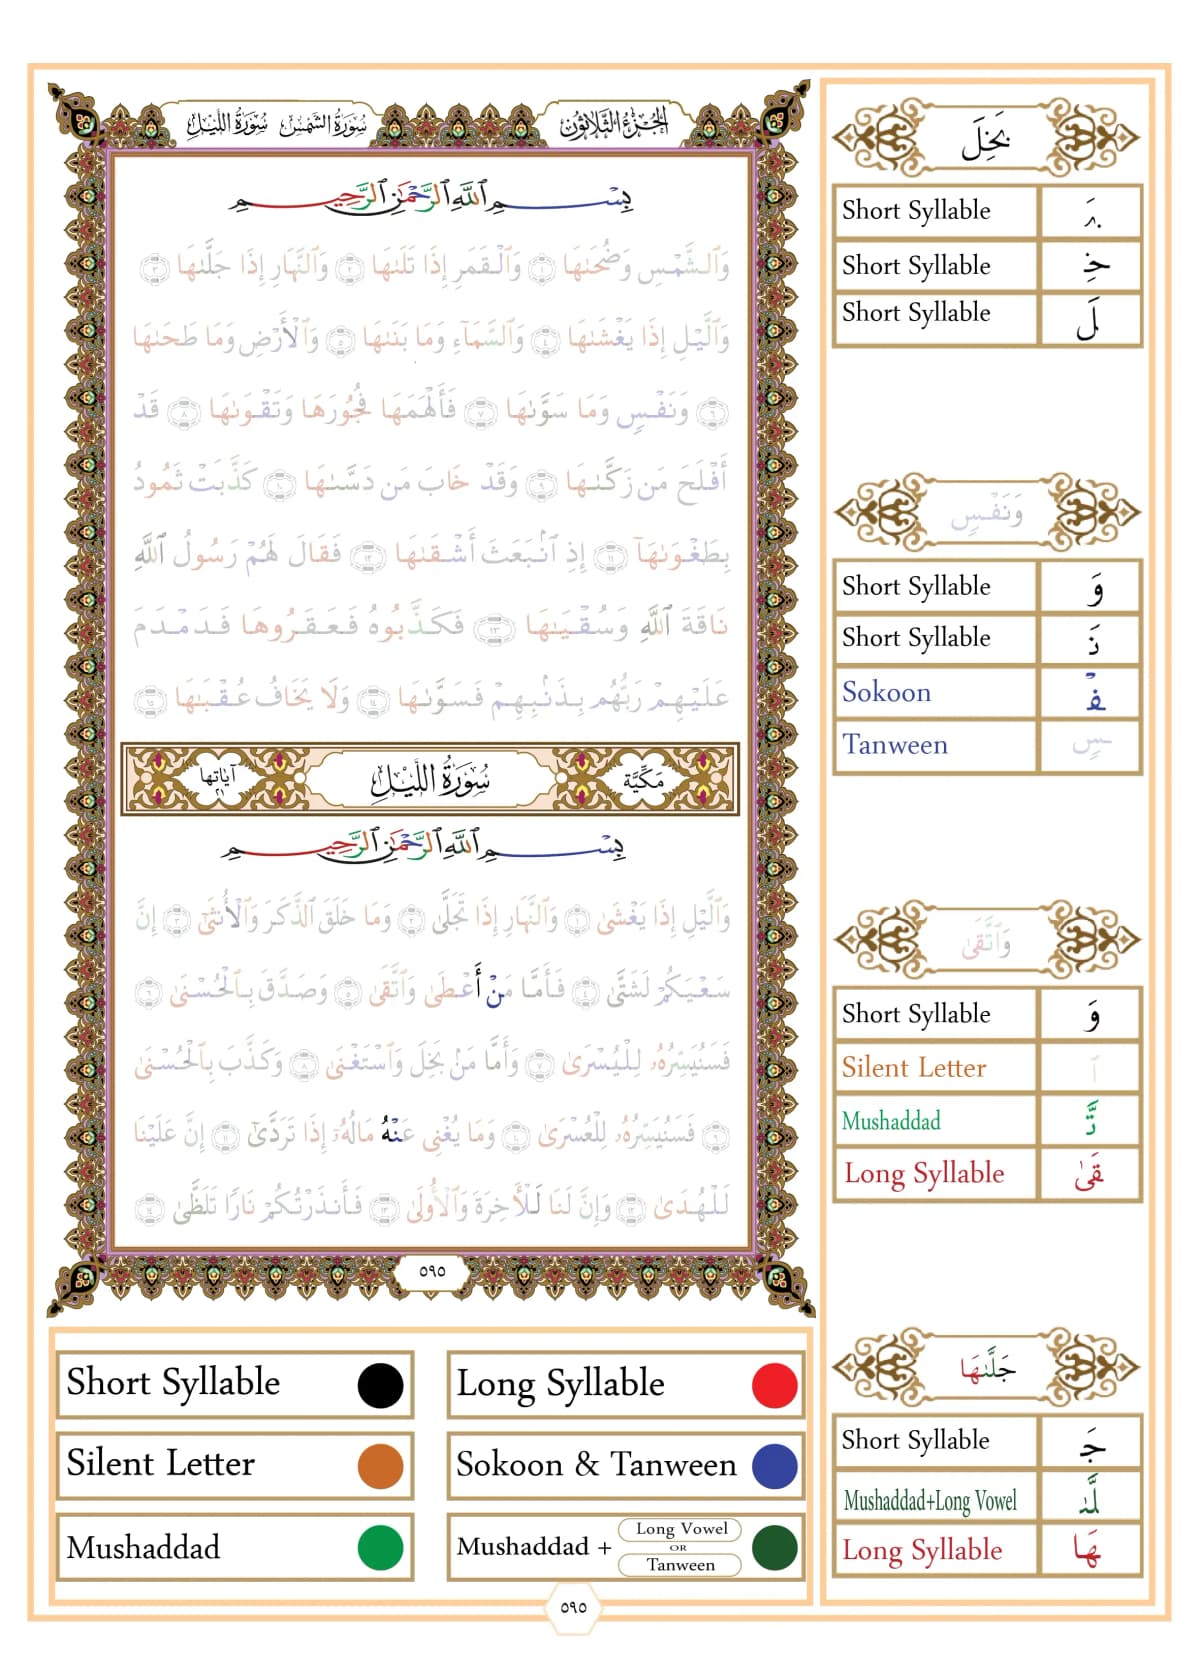 سُورَةُ الشَّمْسِ سُورَةُ اللَّيْلِ
الجُزْءُ الثَّلَاثُونَ
بِسْمِ ٱللَّهِ ٱلرَّحْمَٰنِ ٱلرَّحِيمِ
وَٱلشَّمْسِ وَضُحَىٰهَا ١ وَٱلْقَمَرِ إِذَا تَلَىٰهَا ٢ وَٱلنَّهَارِ إِذَا جَلَّىٰهَا ٣
وَٱلَّيْلِ إِذَا يَغْشَىٰهَا ٤ وَٱلسَّمَآءِ وَمَا بَنَىٰهَا ٥ وَٱلْأَرْضِ وَمَا طَحَىٰهَا
٦ وَنَفْسٍ وَمَا سَوَّىٰهَا ٧ فَأَلْهَمَهَا فُجُورَهَا وَتَقْوَىٰهَا ٨ قَدْ
أَفْلَحَ مَن زَكَّىٰهَا ٩ وَقَدْ خَابَ مَن دَسَّىٰهَا ١٠ كَذَّبَتْ ثَمُودُ
بِطَغْوَىٰهَآ ١١ إِذِ ٱنۢبَعَثَ أَشْقَىٰهَا ١٢ فَقَالَ لَهُمْ رَسُولُ ٱللَّهِ
نَاقَةَ ٱللَّهِ وَسُقْيَٰهَا ١٣ فَكَذَّبُوهُ فَعَقَرُوهَا فَدَمْدَمَ
عَلَيْهِمْ رَبُّهُم بِذَنۢبِهِمْ فَسَوَّىٰهَا ١٤ وَلَا يَخَافُ عُقْبَٰهَا ١٥
مَكِّيَّة سُورَةُ اللَّيْلِ آياتها ٢١
بِسْمِ ٱللَّهِ ٱلرَّحْمَٰنِ ٱلرَّحِيمِ
وَٱلَّيْلِ إِذَا يَغْشَىٰ ١ وَٱلنَّهَارِ إِذَا تَجَلَّىٰ ٢ وَمَا خَلَقَ ٱلذَّكَرَ وَٱلْأُنثَىٰٓ ٣ إِنَّ
سَعْيَكُمْ لَشَتَّىٰ ٤ فَأَمَّا مَنْ أَعْطَىٰ وَٱتَّقَىٰ ٥ وَصَدَّقَ بِٱلْحُسْنَىٰ ٦
فَسَنُيَسِّرُهُۥ لِلْيُسْرَىٰ ٧ وَأَمَّا مَنۢ بَخِلَ وَٱسْتَغْنَىٰ ٨ وَكَذَّبَ بِٱلْحُسْنَىٰ
٩ فَسَنُيَسِّرُهُۥ لِلْعُسْرَىٰ ١٠ وَمَا يُغْنِى عَنْهُ مَالُهُۥٓ إِذَا تَرَدَّىٰٓ ١١ إِنَّ عَلَيْنَا
لَلْهُدَىٰ ١٢ وَإِنَّ لَنَا لَلْأَخِرَةَ وَٱلْأُولَىٰ ١٣ فَأَنذَرْتُكُمْ نَارًا تَلَظَّىٰ ١٤
٥٩٥
بَخِلَ
Short Syllable بَـ
Short Syllable خِـ
Short Syllable لَ
وَنَفْسٍ
Short Syllable وَ
Short Syllable نَـ
Sokoon فْـ
Tanween ـسٍ
وَٱتَّقَىٰ
Short Syllable وَ
Silent Letter ٱ
Mushaddad تَّـ
Long Syllable قَىٰ
جَلَّىٰهَا
Short Syllable جَـ
Mushaddad+Long Vowel لَّىٰـ
Long Syllable هَا
Short Syllable
Long Syllable
Silent Letter
Sokoon & Tanween
Mushaddad
Mushaddad + Long Vowel OR Tanween
٥٩٥